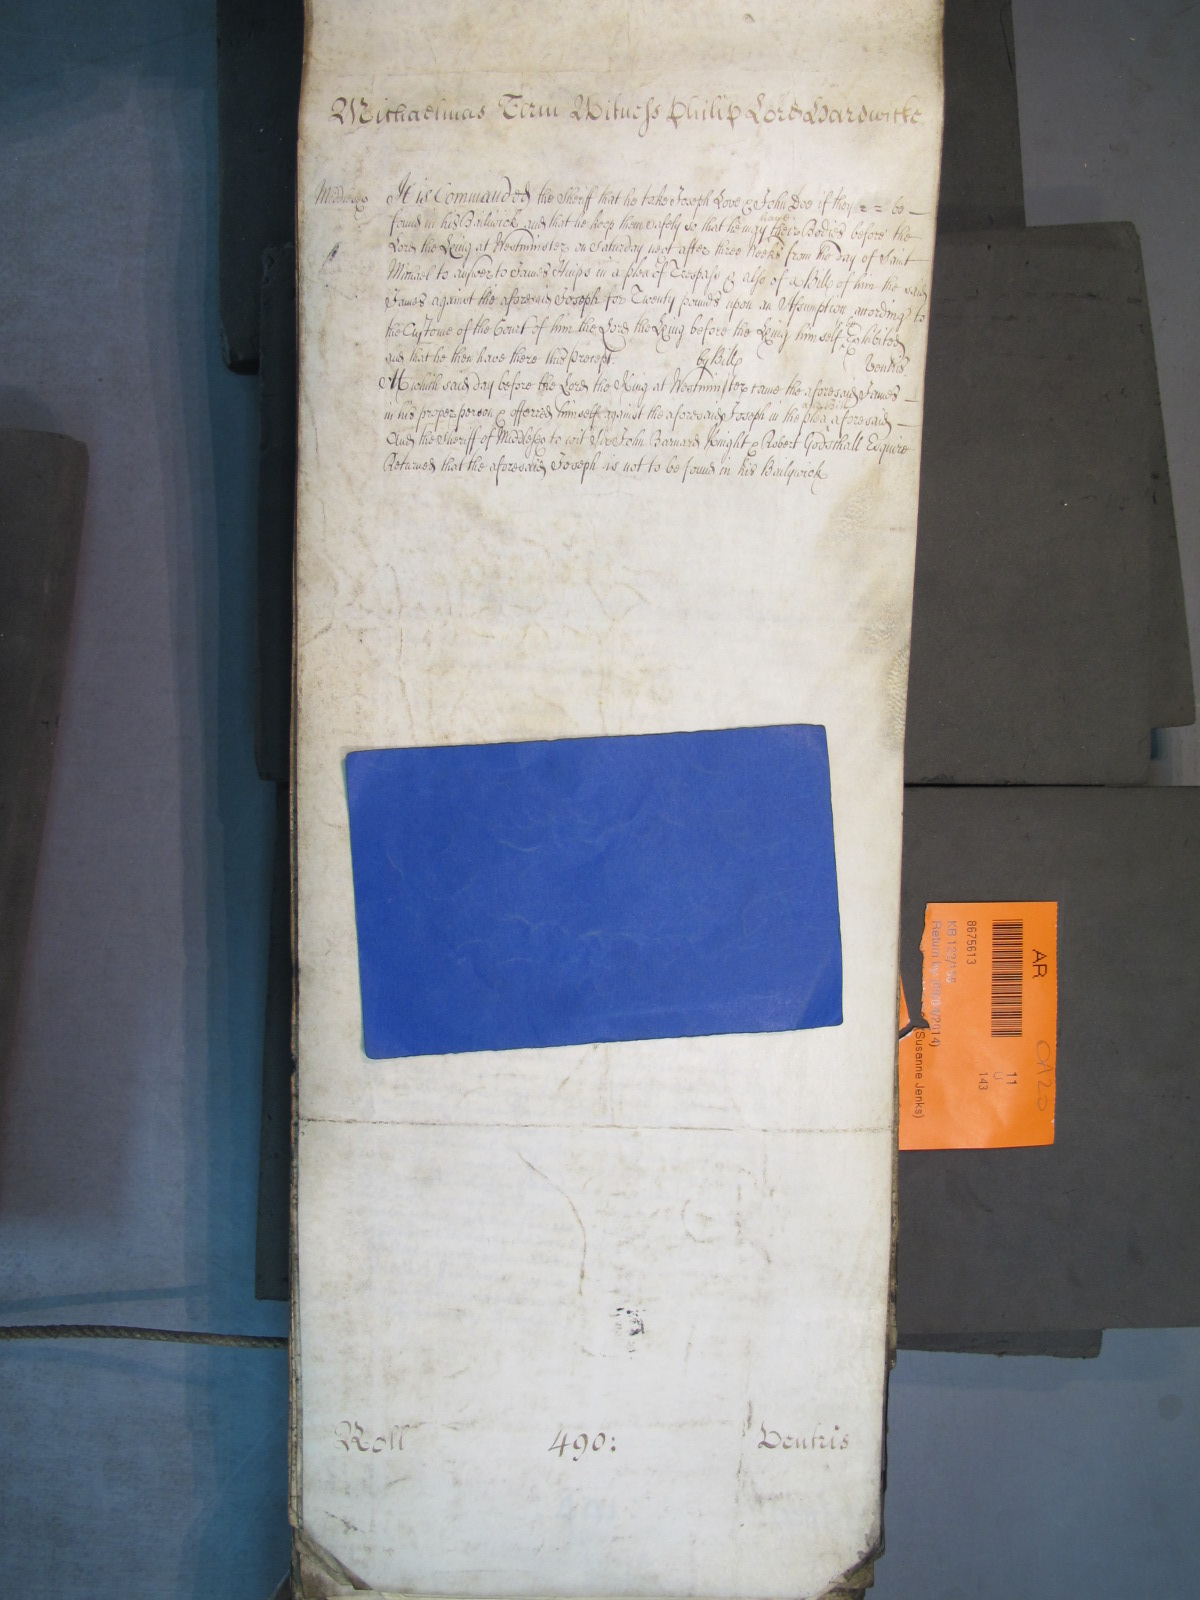 Michaelmas Term Witness Philip Lord Hardwicke
Middlesex It is Commanded the Sheriff that he take Joseph Love & John Doe if they = = be
found in his Bailwick and that he keep them safely so that he may have their Bodies before the
Lord the King at Westminster on Saturday next after three Weeks from the day of Saint
Michael to answer to James in a plea of Trespass & also of a Bill of him the said
James against the aforesaid Joseph for Twenty pounds upon an Assumption according to
the Custome of the Court of him the Lord the King before the King himself to be Exhibited
and that he then have there this Precept. by Bill Ventris
At which said day before the Lord the King at Westminster came the aforesaid James
in his proper person & offerred himself against the aforesaid Joseph in the plea aforesaid
And the Sheriff of Middlesex to wit Sir John Barnard Knight & Robert Godschall Esquire
Returned that the aforesaid Joseph is not to be found in his Bailywick
Roll 490: Ventris
AR
8675613
KB 122/
Return by (2014)
(Susanne Jenks)
11
143